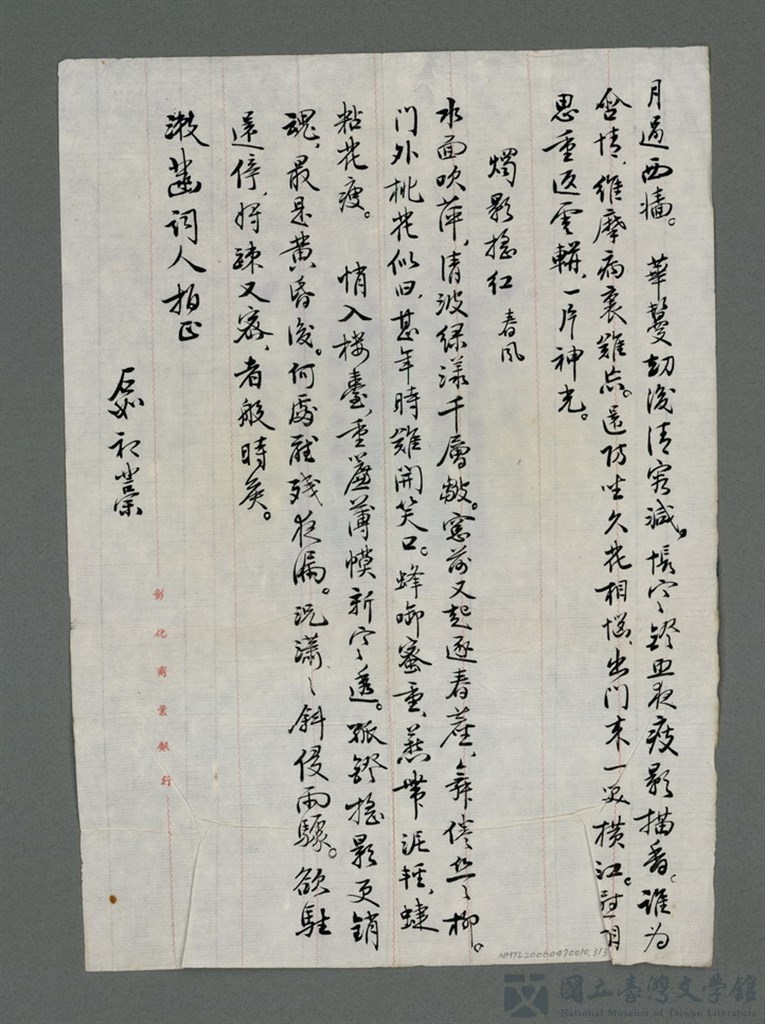 月過西牆。　華鬘劫後清容減。悵宀鐙皿夜瘦影描香。誰為
含情，維摩病裏難忘。還防坐久花相惱，出門來一笑橫江。
思重返雲輧，一片神光。
燭影搖紅 春風
水面吹萍，清波綠漾千層皺。窗前又起逐春塵，舞倦丝〻柳。
門外桃花似旧，甚年時難開笑口。蜂啣蜜重，燕帶泥輕，蜨
粘花瘦。　悄入樓臺，重簾薄幙新寒透。孤鐙搖影更銷
魂，最是黃昏後。何處醒殘夜漏。況瀟〻斜侵雨驟。欲駐
還停，將疎又密，者般時矣。
漱菡詞人拍正
石如初業
彰化商業銀行
NMTL20060470010_313
國立臺灣文學館
National Museum of Taiwan Literature